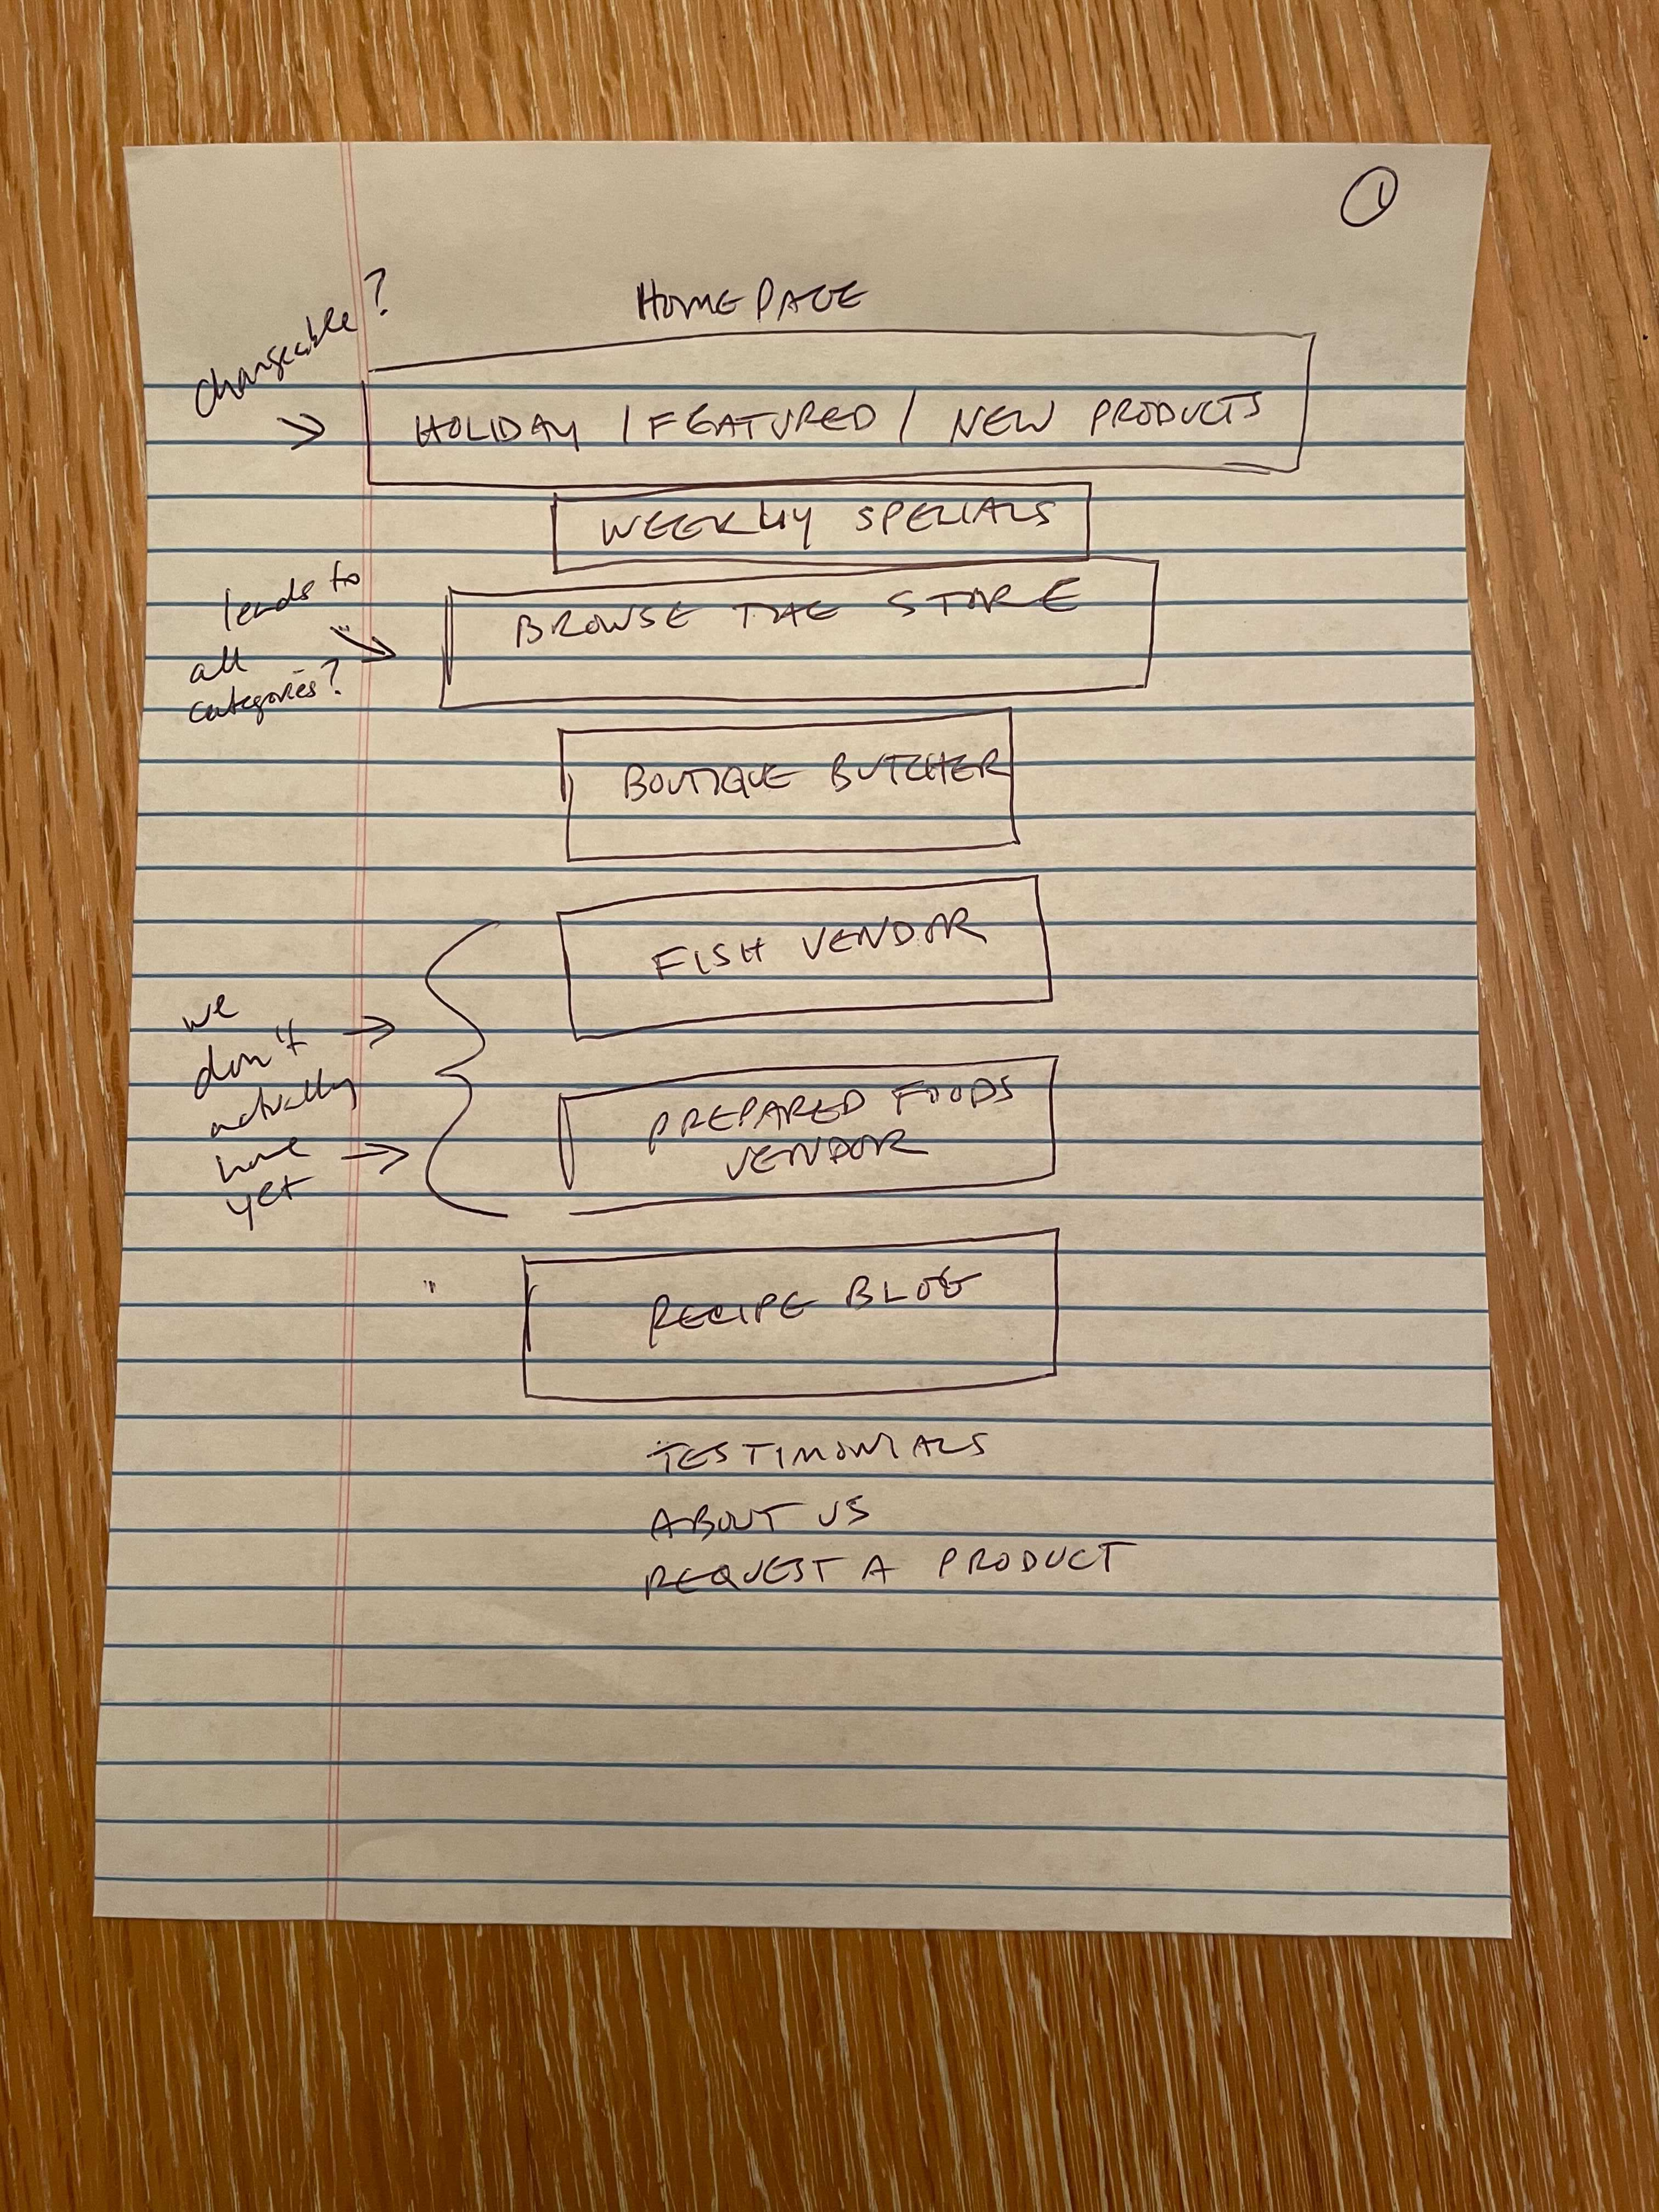 1
HOMEPAGE
changeable?
HOLIDAY / FEATURED / NEW PRODUCTS
WEEKLY SPECIALS
leads to
all
categories?
BROWSE THE STORE
BOUTIQUE BUTCHER
FISH VENDOR
we
don't
actually
have
yet
PREPARED FOODS
VENDOR
RECIPE BLOG
TESTIMONIALS
ABOUT US
REQUEST A PRODUCT